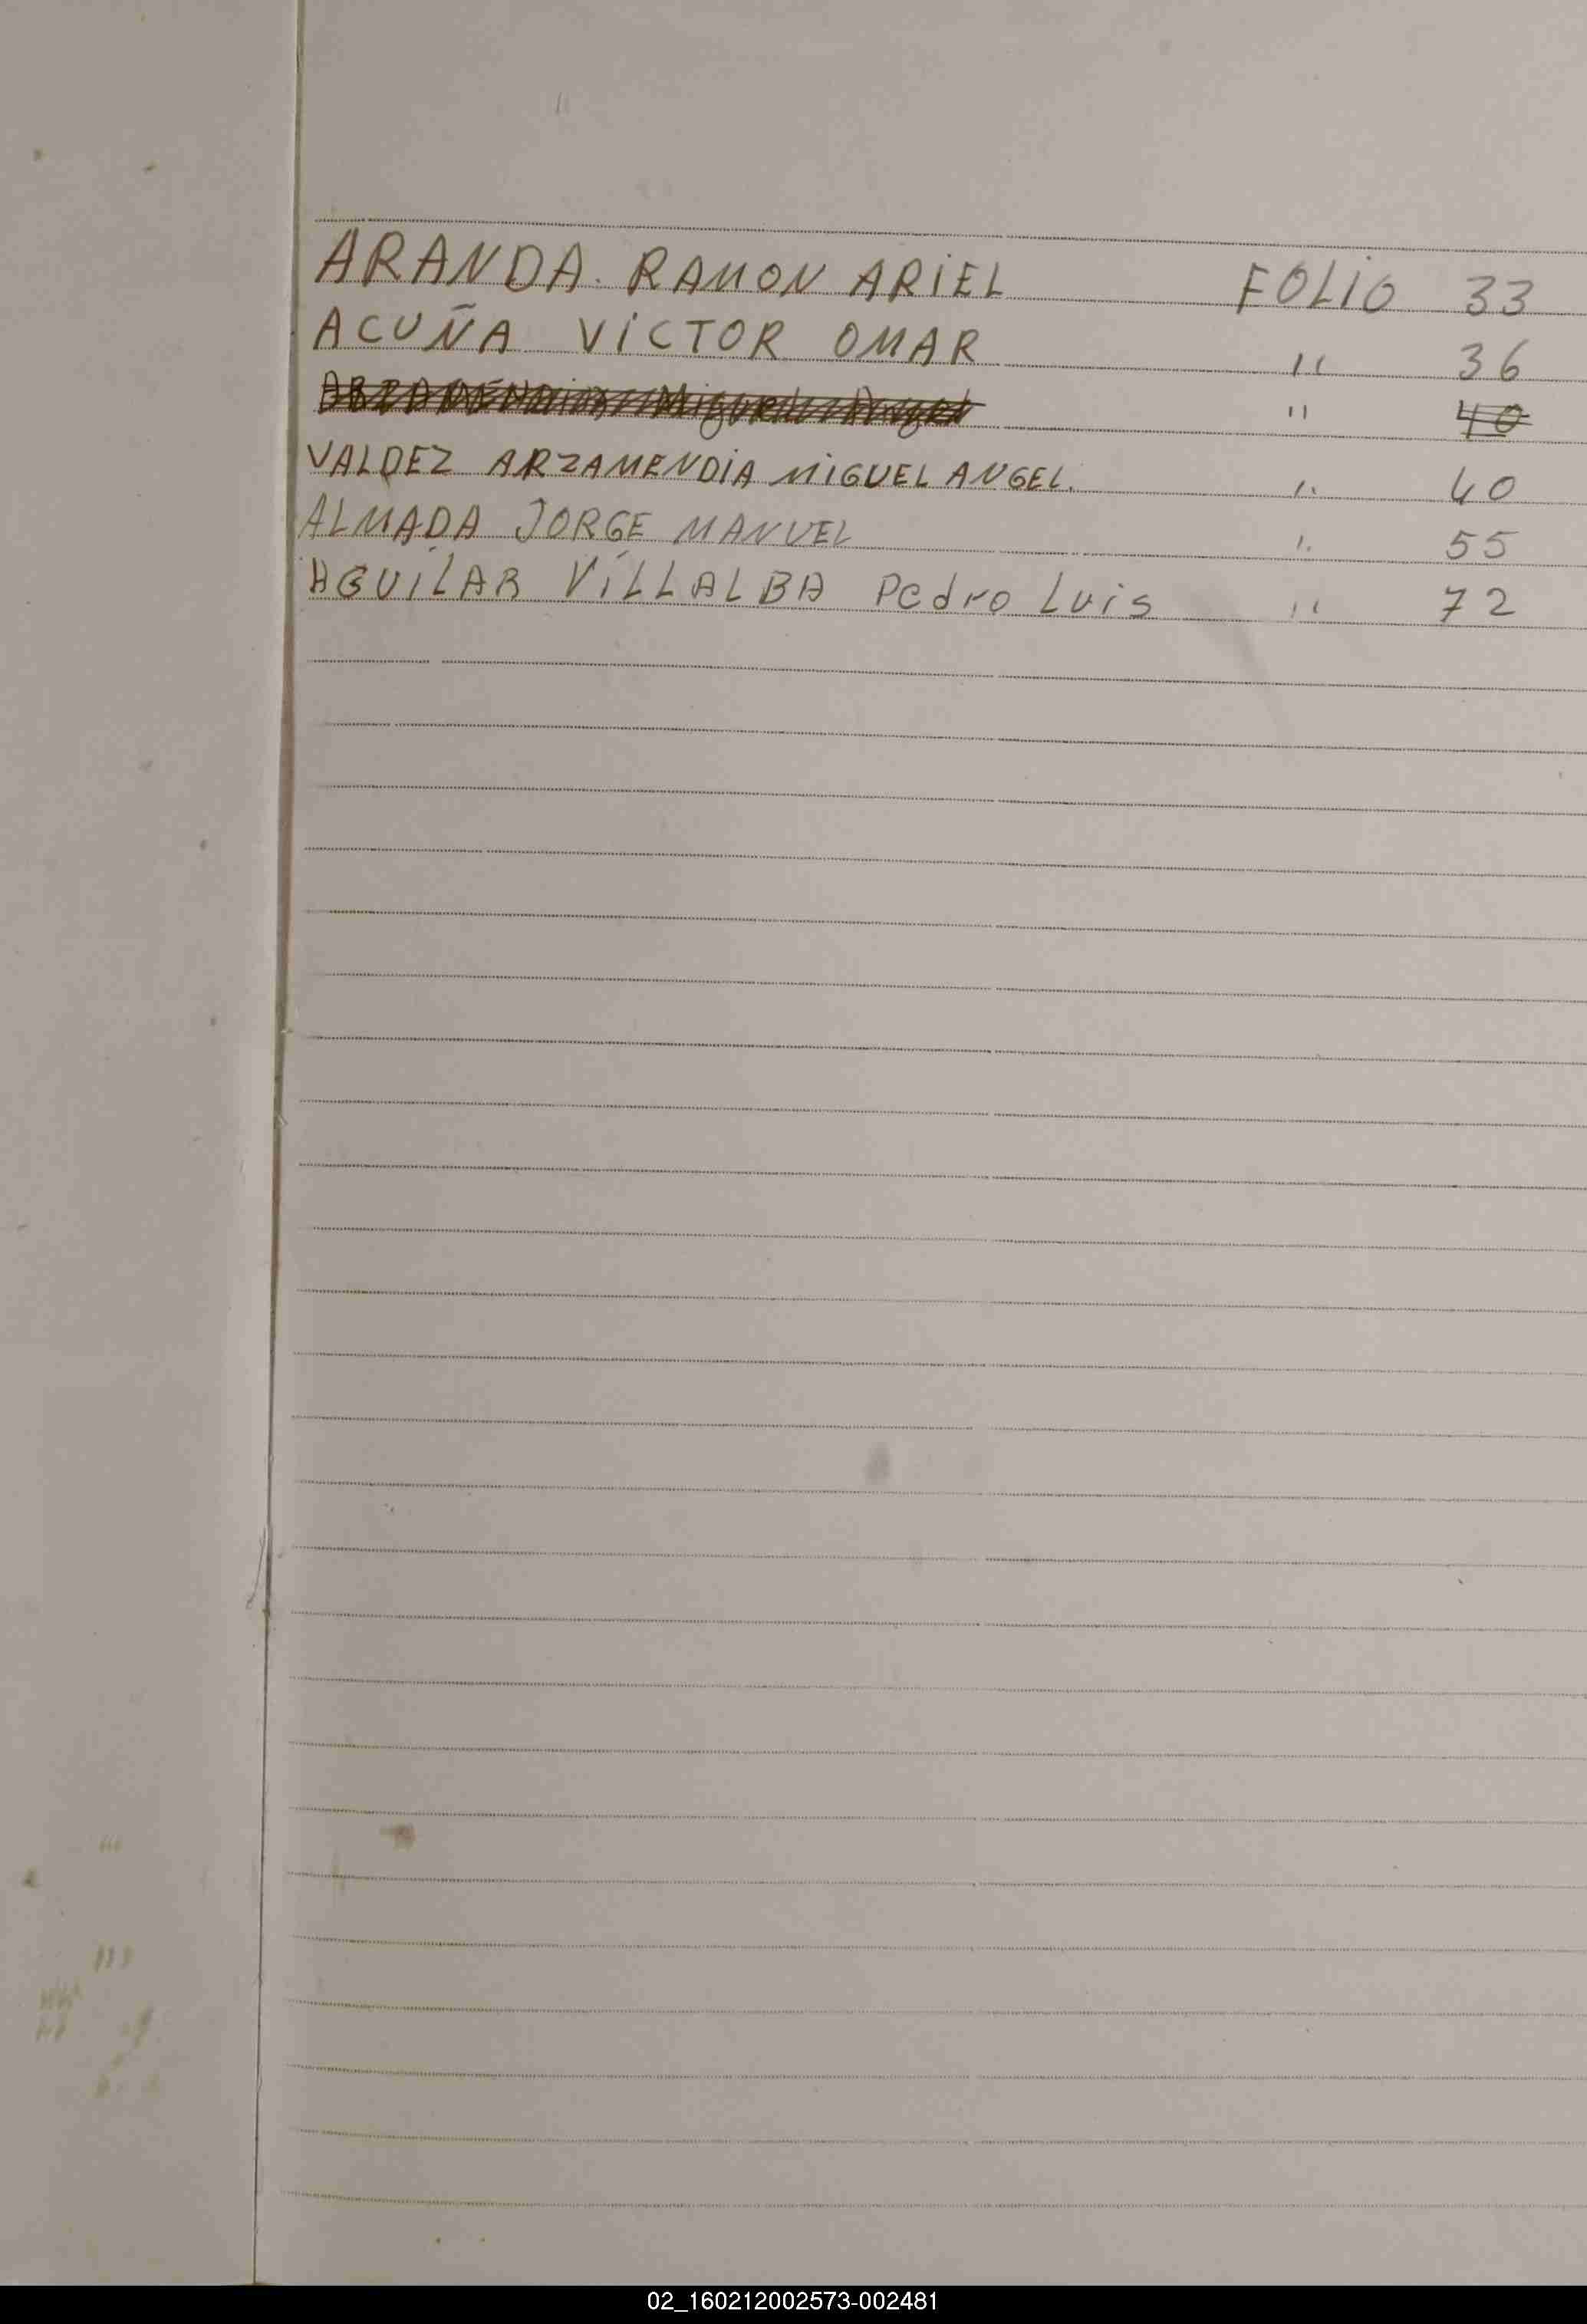 ARANDA. RAMON ARIEL FOLIO 33
ACUÑA VICTOR OMAR " 36
ARZAMENDIA Miguel Angel " 40
VALDEZ ARZAMENDIA MIGUEL ANGEL. " 40
ALMADA JORGE MANUEL " 55
AGUILAR VILLALBA Pedro Luis " 72
02_160212002573-002481